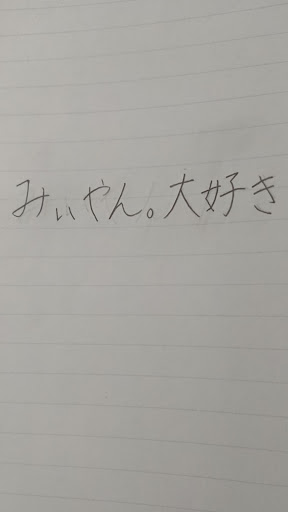 みぃやん。大好き